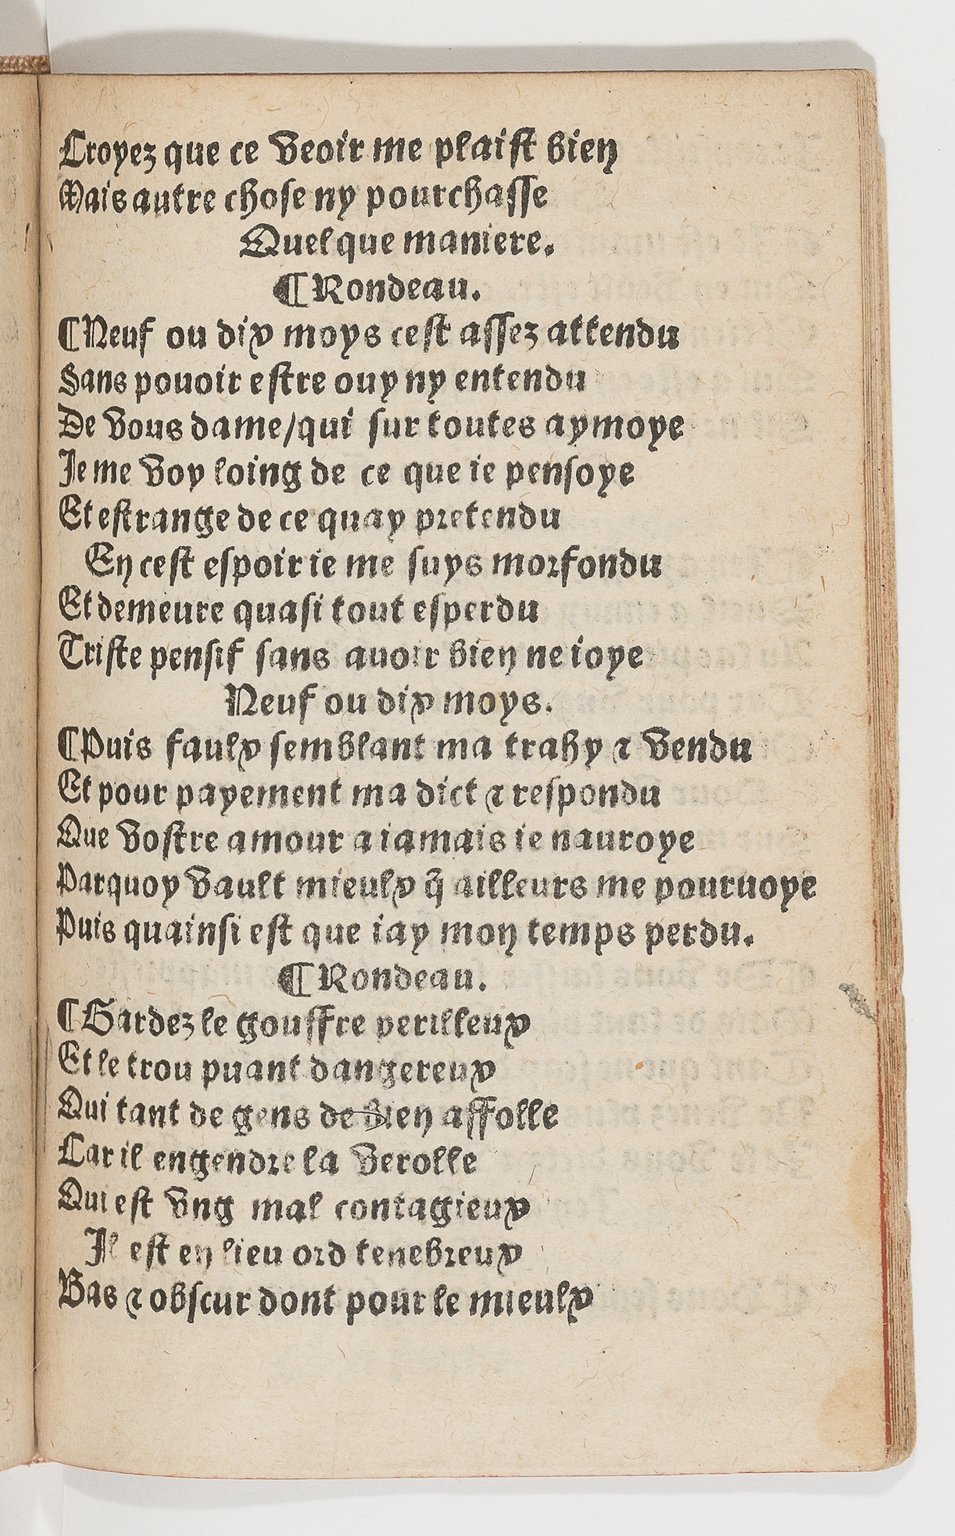 Croyez que ce veoir me plaist bien
Mais autre chose ny pourchasse
Quelque maniere.
¶ Rondeau.
¶ Neuf ou dix moys cest assez attendu
Sans pouoir estre ouy ny entendu
De vous dame/qui sur toutes aymoye
Je me voy loing de ce que ie pensoye
Et estrange de ce quay pretendu
En cest espoir ie me suys morfondu
Et demeure quasi tout esperdu
Triste pensif sans auoir bien ne ioye
Neuf ou dix moys.
¶ Puis faulx semblant ma trahy ⁊ vendu
Et pour payement ma dict ⁊ respondu
Que vostre amour a iamais ie nauroye
Parquoy vault mieulx q̃ ailleurs me pouruoye
Puis quainsi est que iay mon temps perdu.
¶ Rondeau.
¶ Gardez le gouffre perilleux
Et le trou puant dangereux
Qui tant de gens de bien affolle
Car il engendre la verolle
Qui est vng mal contagieux
Il est en lieu ord tenebreux
Bas ⁊ obscur dont pour le mieulx